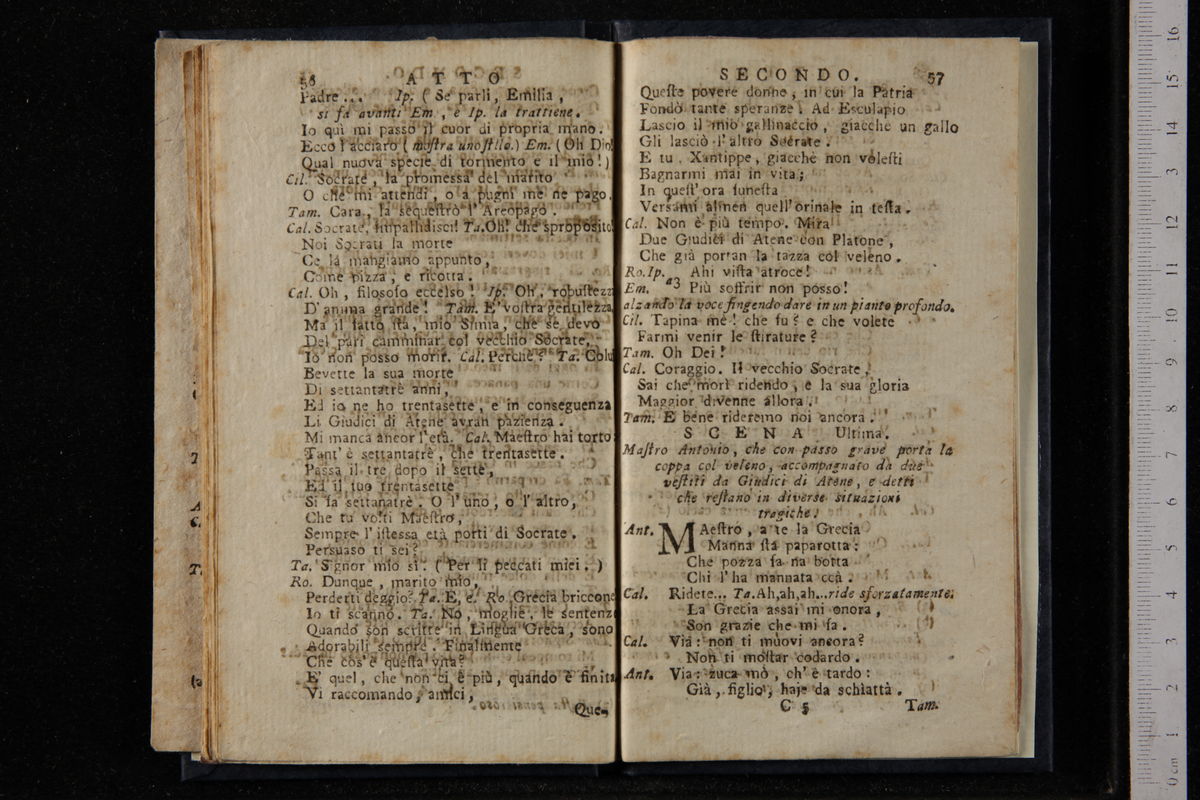 56 ATTO
Padre... Ip. (Se parli, Emilia,
si fa avanti Em, e Ip. la trattiene.
Io quì mi passo il cuor di propria mano.
Ecco l'acciaro (mostra uno stilo.) Em. (Oh Dio!
Qual nuova specie di tormento è il mio!)
Cil. Socrate, la promessa del marito
O che mi attendi, o a pugni me ne pago.
Tam. Cara, la sequestrò l'Areopago.
Cal. Socrate, impallidisci! Ta. Oh! che sproposito!
Noi Socrati la morte
Ce la mangiamo appunto,
Come pizza, e ricotta.
Cal. Oh, filosofo eccelso! Ip. Oh, robustezz
D'anima grande! Tam. E' vostra gentilezza,
Ma il fatto sta, mio Simia, che se devo
Del pari camminar col vecchio Socrate,
Io non posso morir. Cal. Perchè? Ta. Colu
Bevette la sua morte
Di settantatrè anni,
Ed io ne ho trentasette, e in conseguenza
Li Giudici di Atene avran pazienza.
Mi manca ancor l'età. Cal. Maestro hai torto
Tant' è settantatrè, che trentasette.
Passa il tre dopo il sette,
Ed il tuo trentasette
Si fa settanatrè. O l'uno, o l'altro,
Che tu volti Maestro,
Sempre l'istessa età porti di Socrate.
Persuaso ti sei?
Ta. Signor mio sì. (Per li peccati miei.)
Ro. Dunque, marito mio,
Perderti deggio? Ta. E, e. Ro. Grecia briccone
Io ti scanno. Ta. No, moglie, le sentenz
Quando son scritte in Lingua Greca, sono
Adorabili sempre. Finalmente
Che cos'è questa vita?
E' quel, che non ci è più, quando è finita
Vi raccomando, amici,
Que-
SECONDO. 57
Queste povere donne, in cui la Patria
Fondò tante speranze. Ad Esculapio
Lascio il mio gallinaccio, giacchè un gallo
Gli lasciò l'altro Socrate.
E tu, Xantippe, giacchè non volesti
Bagnarmi mai in vita;
In quest'ora funesta
Versami almen quell'orinale in testa.
Cal. Non è più tempo. Mira
Due Giudici di Atene con Platone,
Che già portan la tazza col veleno.
Ro. Ip. Ahi vista atroce!
Em. a3 Più soffrir non posso!
alzando la voce fingendo dare in un pianto profondo.
Cil. Tapina me! che fu? e che volete
Farmi venir le stirature?
Tam. Oh Dei!
Cal. Coraggio. Il vecchio Socrate,
Sai che morì ridendo, e la sua gloria
Maggior divenne allora.
Tam. E bene rideremo noi ancora.
SCENA Ultima.
Mastro Antonio, che con passo grave porta la
coppa col veleno, accompagnato da due
vestiti da Giudici di Atene, e detti
che restano in diverse situazioni
tragiche.
Ant. MAestro, a te la Grecia
Manna sta paparotta:
Che pozza fa na botta
Chi l'ha mannata ccà.
Cal. Ridete... Ta. Ah, ah, ah...ride sforzatamente.
La Grecia assai mi onora,
Son grazie che mi fa.
Cal. Via: non ti muovi ancora?
Non ti mostar codardo.
Ant. Via: zuca mò, ch'è tardo:
Già, figlio, haje da schiattà.
C 5 Tam.